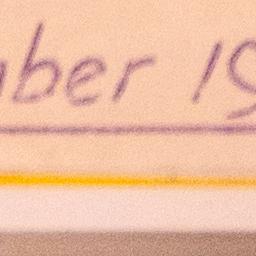 ber 19